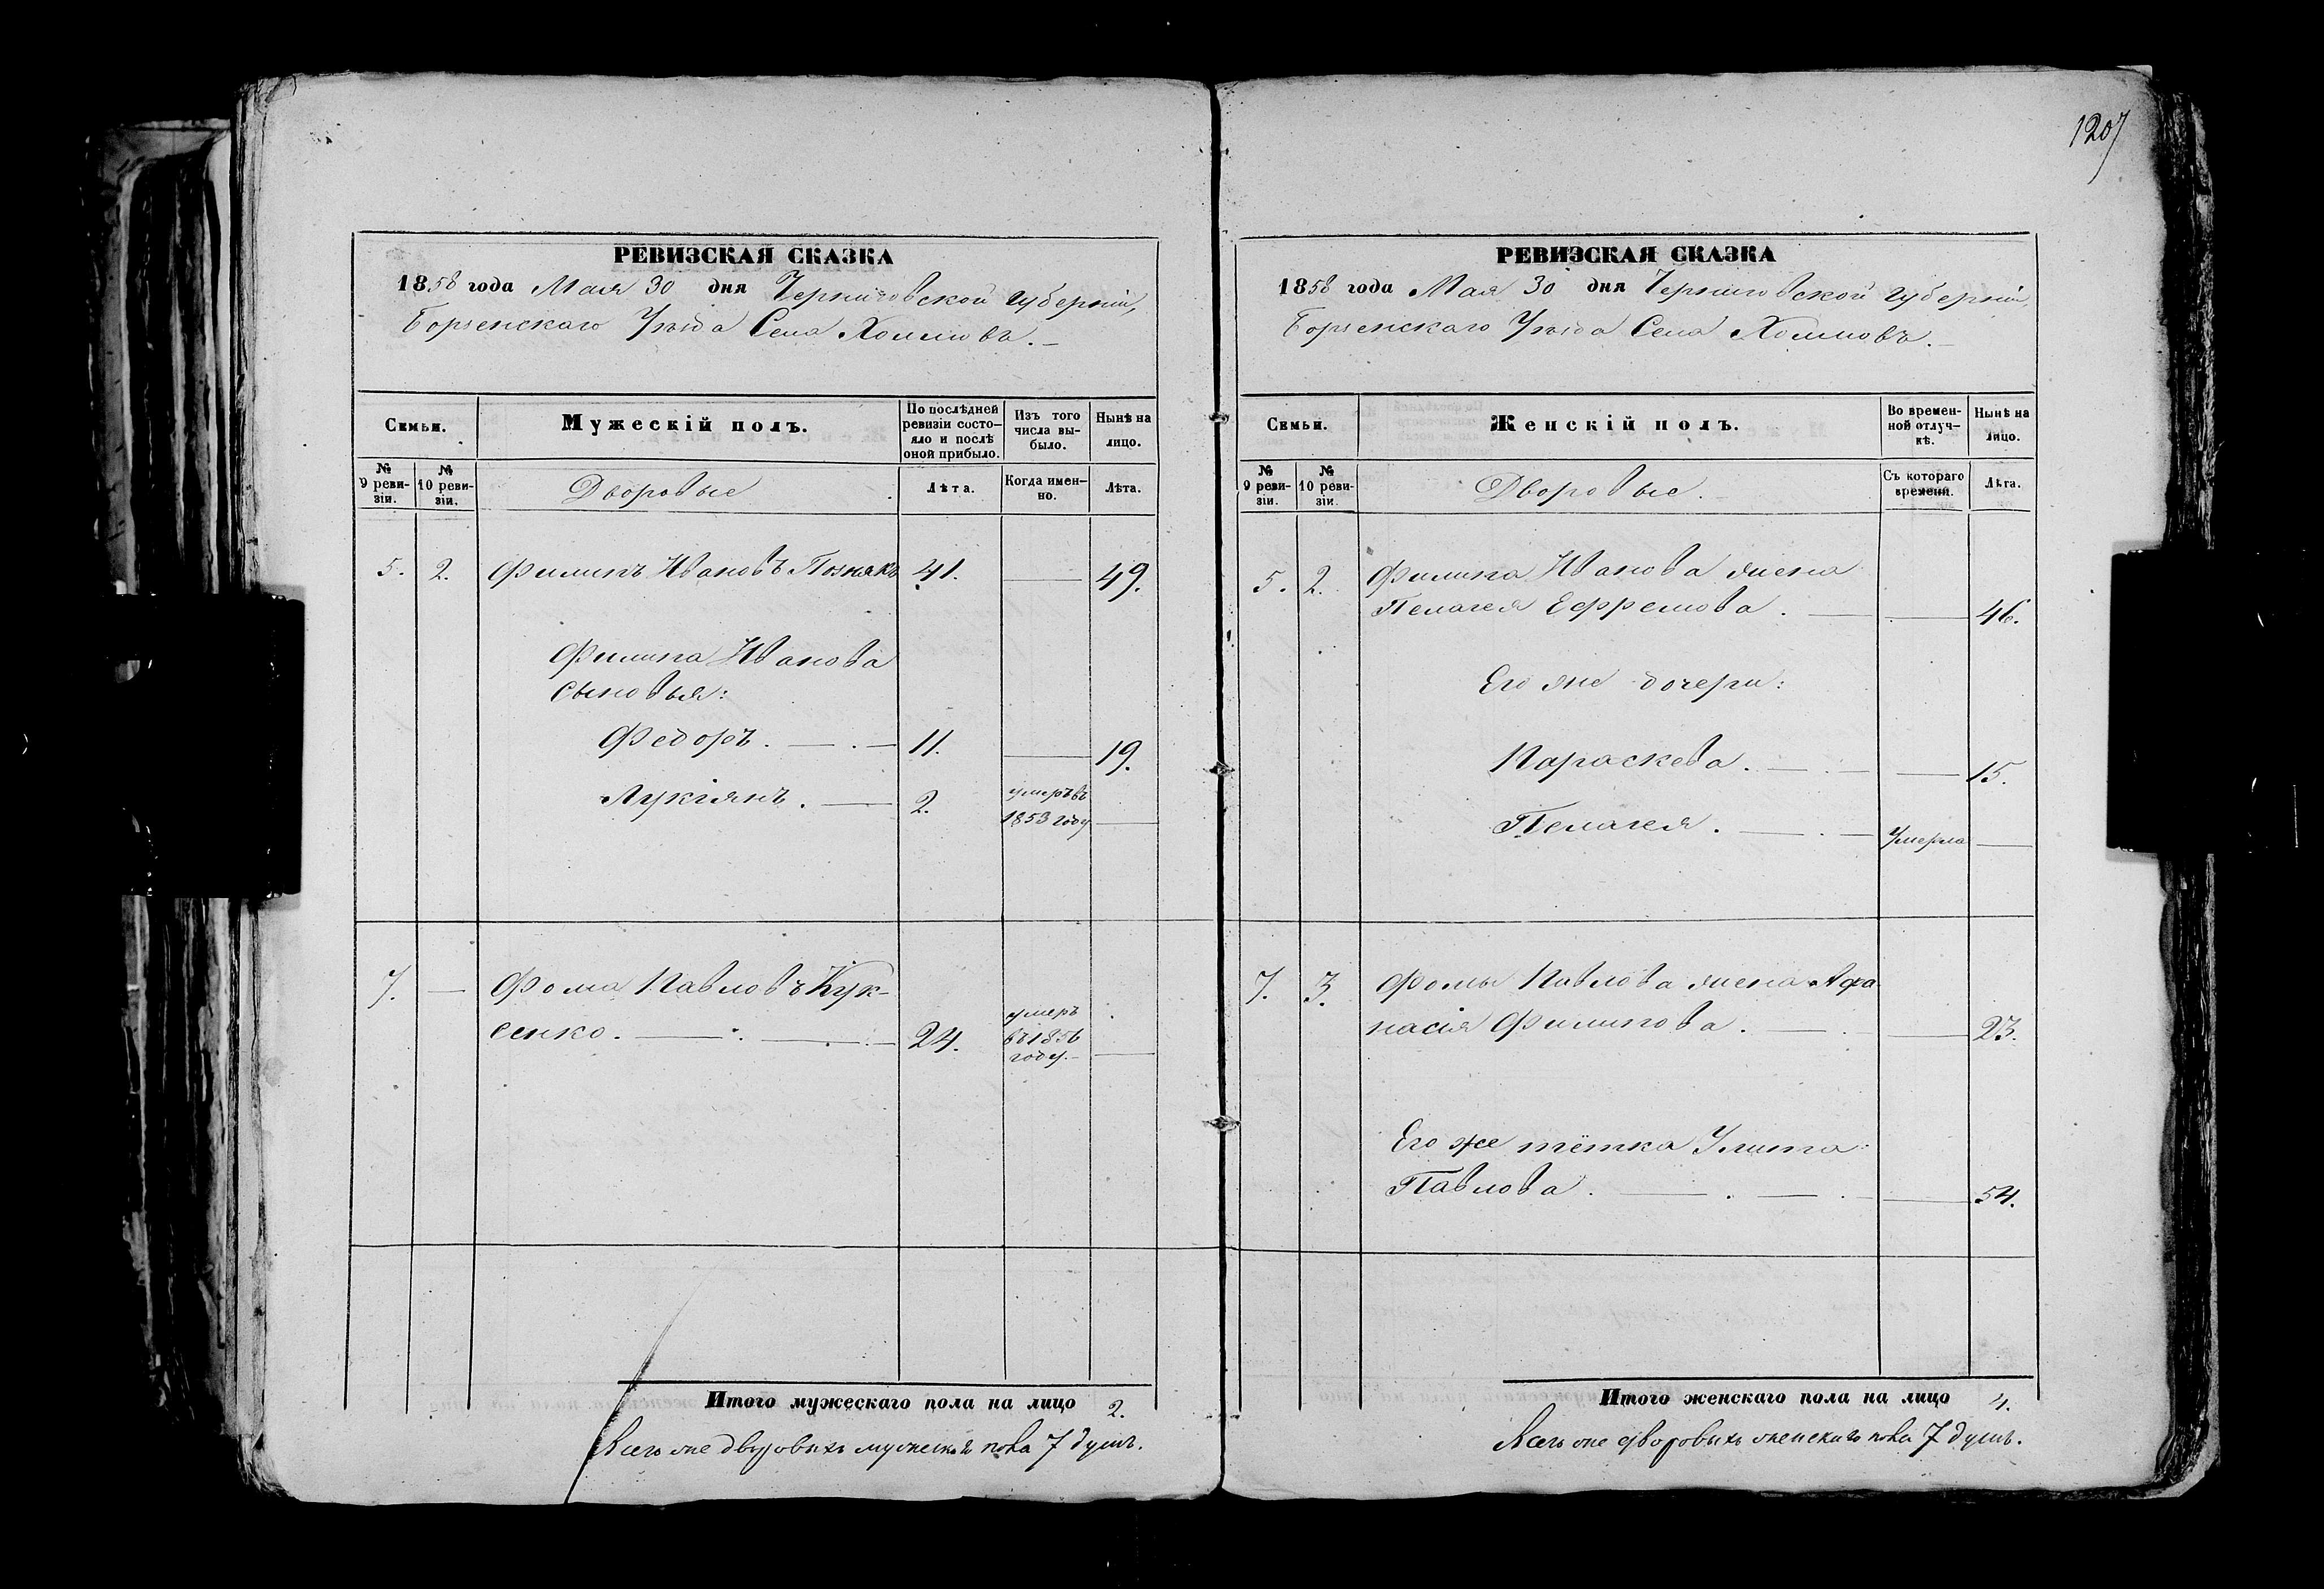 1207
РЕВИЗСКАЯ СКАЗКА
1858 года Мая 30 дня Черниговской губерніи,
Борзенскаго Уѣзда Села Холмовъ.
Семьи.
Мужескій полъ.
По послѣдней ревизіи состояло и послѣ оной прибыло.
Изъ того числа выбыло.
Нынѣ на лицо.
№ 9 ревизіи.
№ 10 ревизіи.
Дворовые
Лѣта.
Когда именно.
Лѣта.
5. 2. Филипъ Ивановъ Познякъ 41. — 49.
Филипа Иванова
сыновья:
Федоръ. — . — 11. — 19.
Лукіянъ. — 2. умеръ въ
1853 году —
7. — Фома Павловъ Кук-
сенко. — . — 24. умеръ
въ 1856
году. —
Итого мужескаго пола на лицо 2.
Всего же дворовыхъ мужескаго пола 7 душъ.
РЕВИЗСКАЯ СКАЗКА
1858 года Мая 30 дня Черниговской губерніи,
Борзенскаго Уѣзда Села Холмовъ.
Семьи.
Женскій полъ.
Во временной отлучкѣ.
Нынѣ на лицо.
№ 9 ревизіи.
№ 10 ревизіи.
Дворовые.
Съ котораго времени.
Лѣта.
5. 2. Филипа Иванова жена
Пелагея Ефремова. — — 46.
Его же дочери:
Параскева. — — 15.
Пелагея. — . — Умерла —
7. 3. Фомы Павлова жена Афа
насія Филипова. — — 23.
Его же тётка Улита
Павлова. — . — — 54.
Итого женскаго пола на лицо 4.
Всего же дворовыхъ женскаго пола 7 душъ.